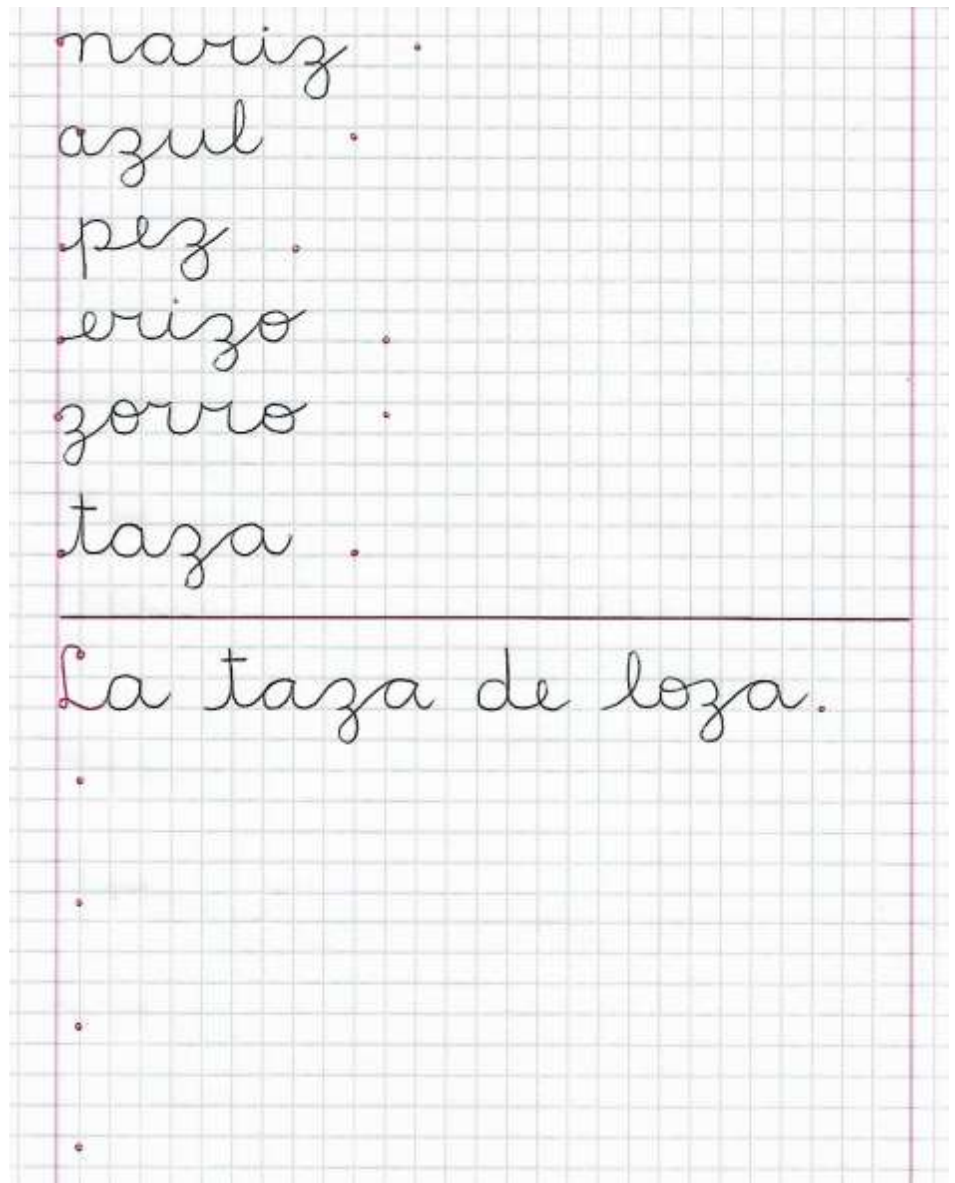 nariz
azul
pez
erizo
zorro
taza
La taza de loza.